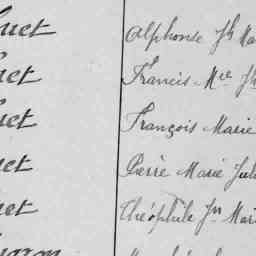 uet Alphonse Jh Ma
uet Francis Mie Jh
uet François Marie
uet Pierre Marie Jule
uet Théophile Jn Mari